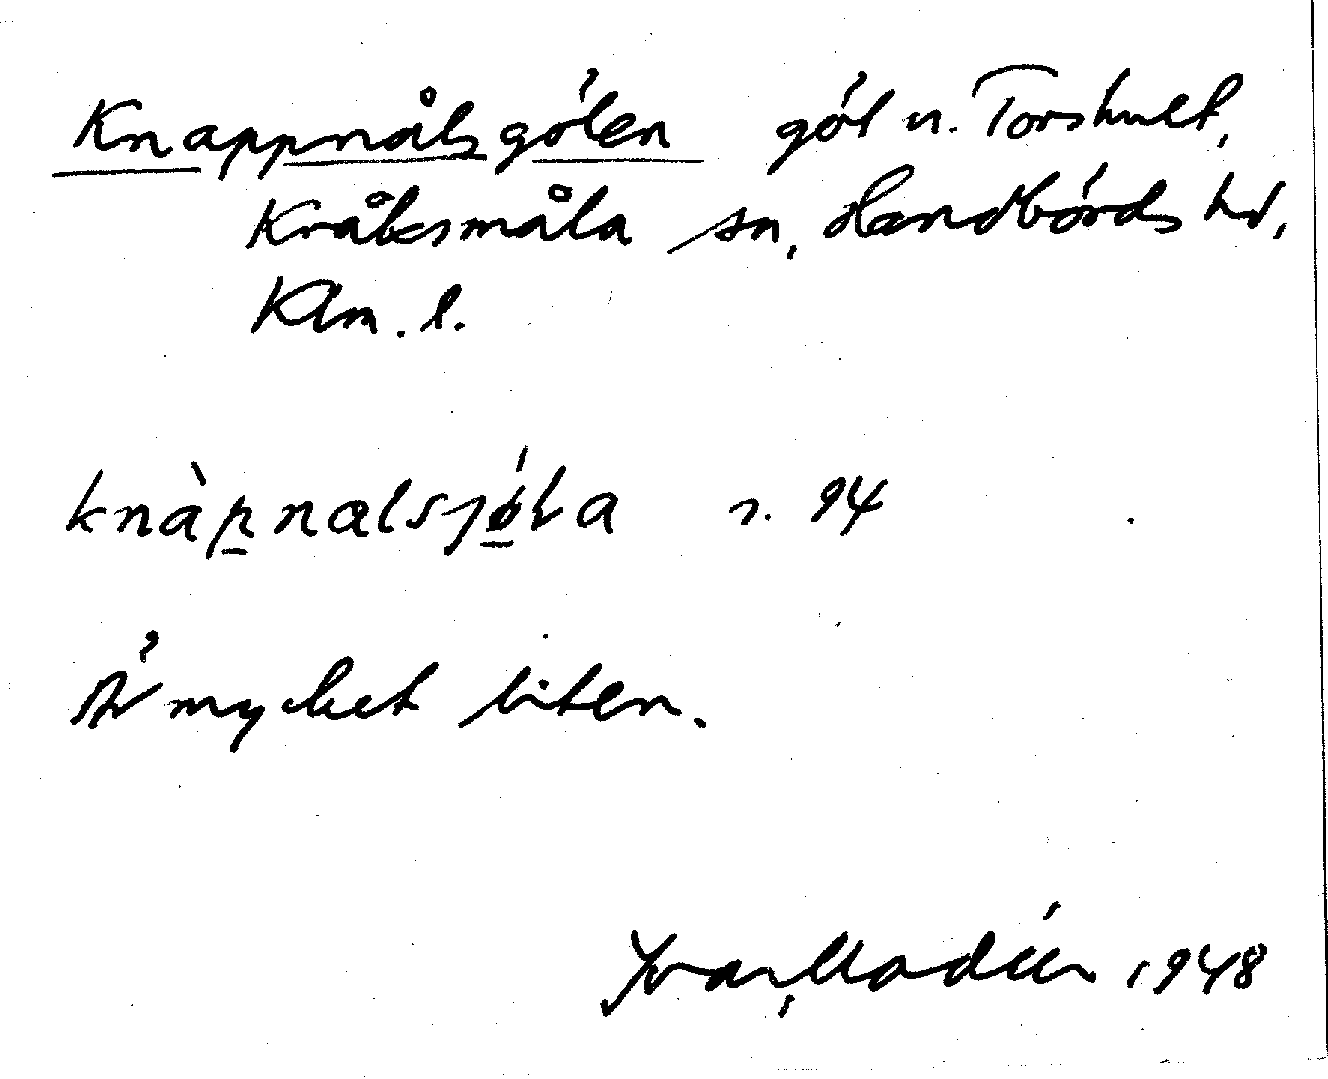 Knappnålsgölen göl n. Torshult,
Kråksmåla sn, Handbörds hd,
Klm. l.
knàp̲nalsjǿ̲la r. 94
Är mycket liten.
Ivar Modéer 1948